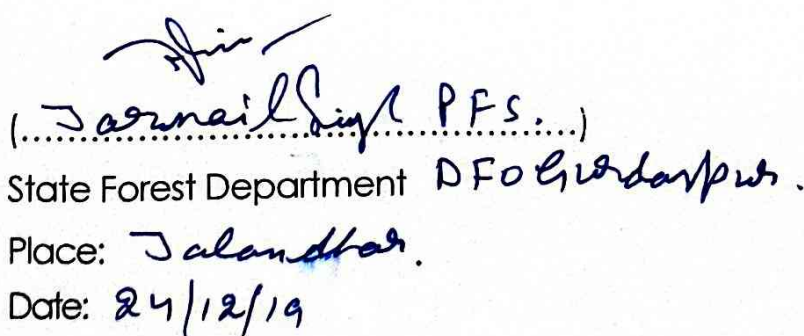 (....Jarnail Singh PFS.....)
State Forest Department DFO Gurdaspur.
Place: Jalandhar.
Date: 24/12/19